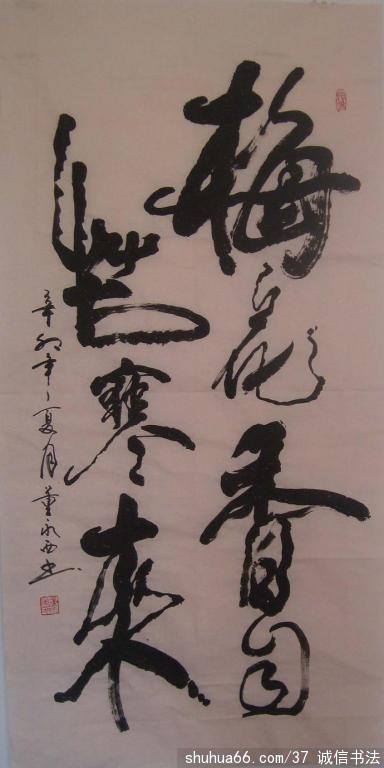 梅花香自
苦寒來
辛卯年夏月董永西书
shuhua66.com/37 诚信书法